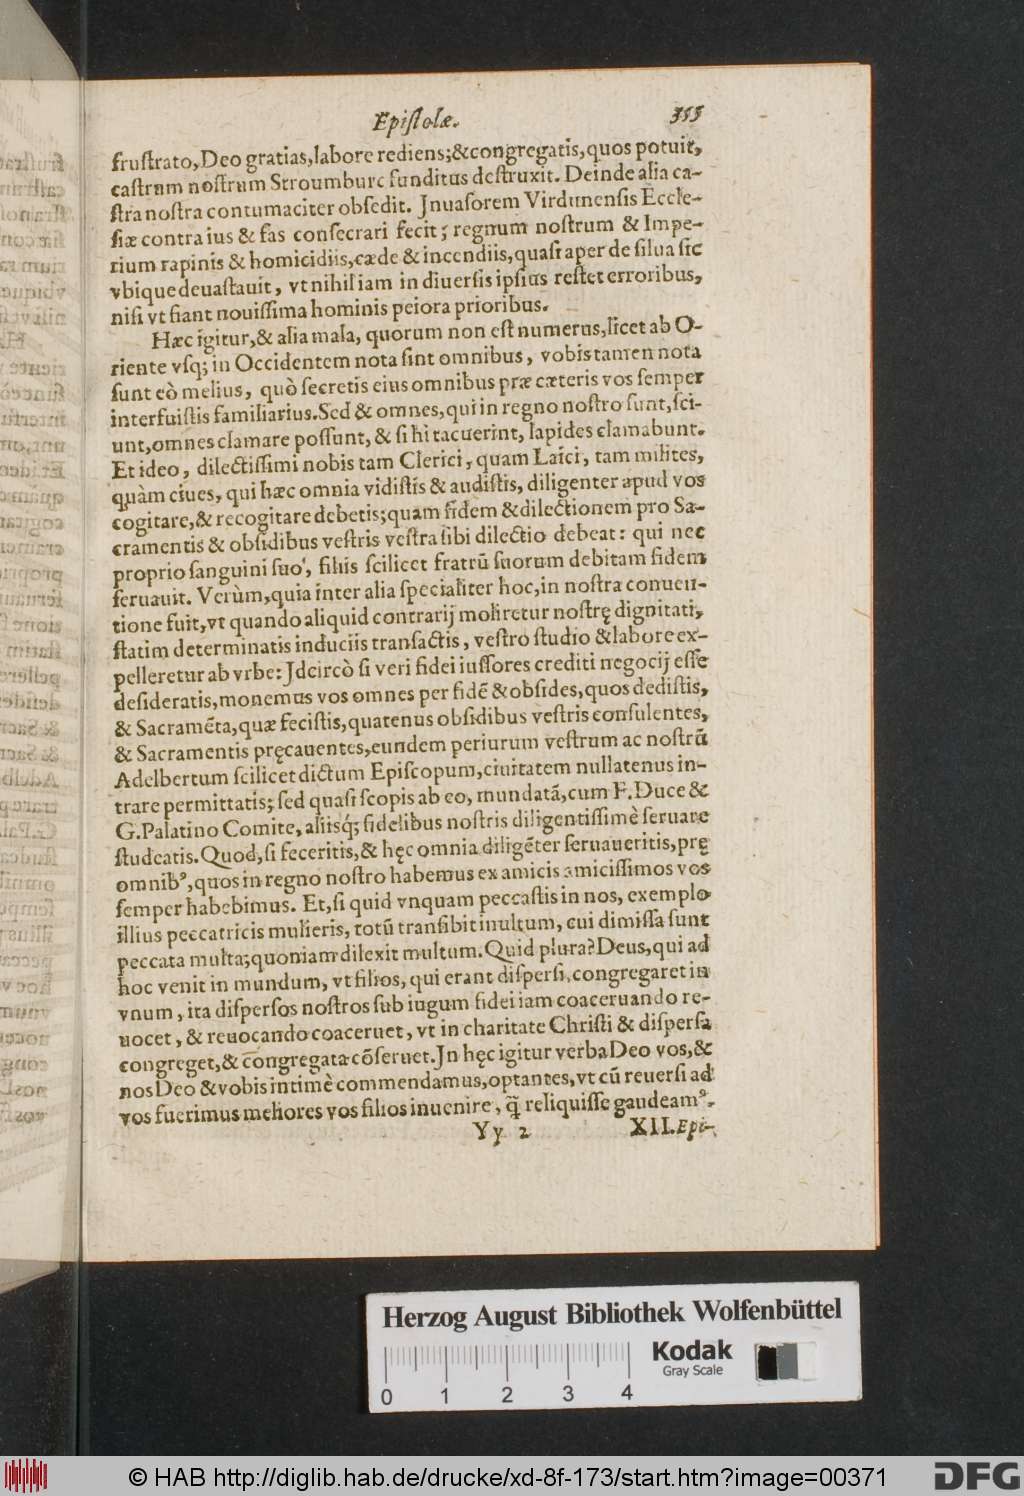 Epistolæ. 355
frustrato, Deo gratias, labore rediens; & congregatis, quos potuit,
castrum nostrum Stroumburc funditus destruxit. Deinde alia ca-
stra nostra contumaciter obsedit. Jnuasorem Virdunensis Eccle-
siæ contra ius & fas consecrari fecit; regnum nostrum & Impe-
rium rapinis & homicidiis, cæde & incendiis, quasi aper de silua sic
vbique deuastauit, vt nihil iam in diuersis ipsius restet erroribus,
nisi vt fiant nouissima hominis peiora prioribus.
Hæc igitur, & alia mala, quorum non est numerus, licet ab O-
riente vsq; in Occidentem nota sint omnibus, vobis tamen nota
sunt eò melius, quò secretis eius omnibus præ cæteris vos semper
interfuistis familiarius. Sed & omnes, qui in regno nostro sunt, sci-
unt, omnes clamare possunt, & si hi tacuerint, lapides clamabunt.
Et ideo, dilectissimi nobis tam Clerici, quam Laici, tam milites,
quàm ciues, qui hæc omnia vidistis & audistis, diligenter apud vos
cogitare, & recogitare debetis; quam fidem & dilectionem pro Sa-
cramentis & obsidibus vestris vestra sibi dilectio debeat: qui nec
proprio sanguini suo, filiis scilicet fratrū suorum debitam fidem
seruauit. Verùm, quia inter alia specialiter hoc, in nostra conuen-
tione fuit, vt quando aliquid contrarij moliretur nostrę dignitati,
statim determinatis induciis transactis, vestro studio & labore ex-
pelleretur ab vrbe: Jdcircò si veri fidei iussores crediti negocij esse
desideratis, monemus vos omnes per fidē & obsides, quos dedistis,
& Sacramēta, quæ fecistis, quatenus obsidibus vestris consulentes,
& Sacramentis pręcauentes, eundem periurum vestrum ac nostrū
Adelbertum scilicet dictum Episcopum, ciuitatem nullatenus in-
trare permittatis; sed quasi scopis ab eo, mundatā, cum F. Duce &
G. Palatino Comite, aliisq́; fidelibus nostris diligentissimè seruare
studeatis. Quod, si feceritis, & hęc omnia diligēter seruaueritis, prę
omnibꝰ, quos in regno nostro habemus ex amicis amicissimos vos
semper habebimus. Et, si quid vnquam peccastis in nos, exemplo
illius peccatricis mulieris, totū transibit inultum, cui dimissa sunt
peccata multa; quoniam dilexit multum. Quid plura? Deus, qui ad
hoc venit in mundum, vt filios, qui erant dispersi, congregaret in
vnum, ita dispersos nostros sub iugum fidei iam coaceruando re-
uocet, & reuocando coaceruet, vt in charitate Christi & dispersa
congreget, & congregata cōseruet. Jn hęc igitur verba Deo vos, &
nos Deo & vobis intimè commendamus, optantes, vt cū reuersi ad
vos fuerimus meliores vos filios inuenire, q̃ reliquisse gaudeamꝰ.
Yy 2 XII. Epi-
Herzog August Bibliothek Wolfenbüttel
0 1 2 3 4
Kodak
Gray Scale
© HAB http://diglib.hab.de/drucke/xd-8f-173/start.htm?image=00371
DFG